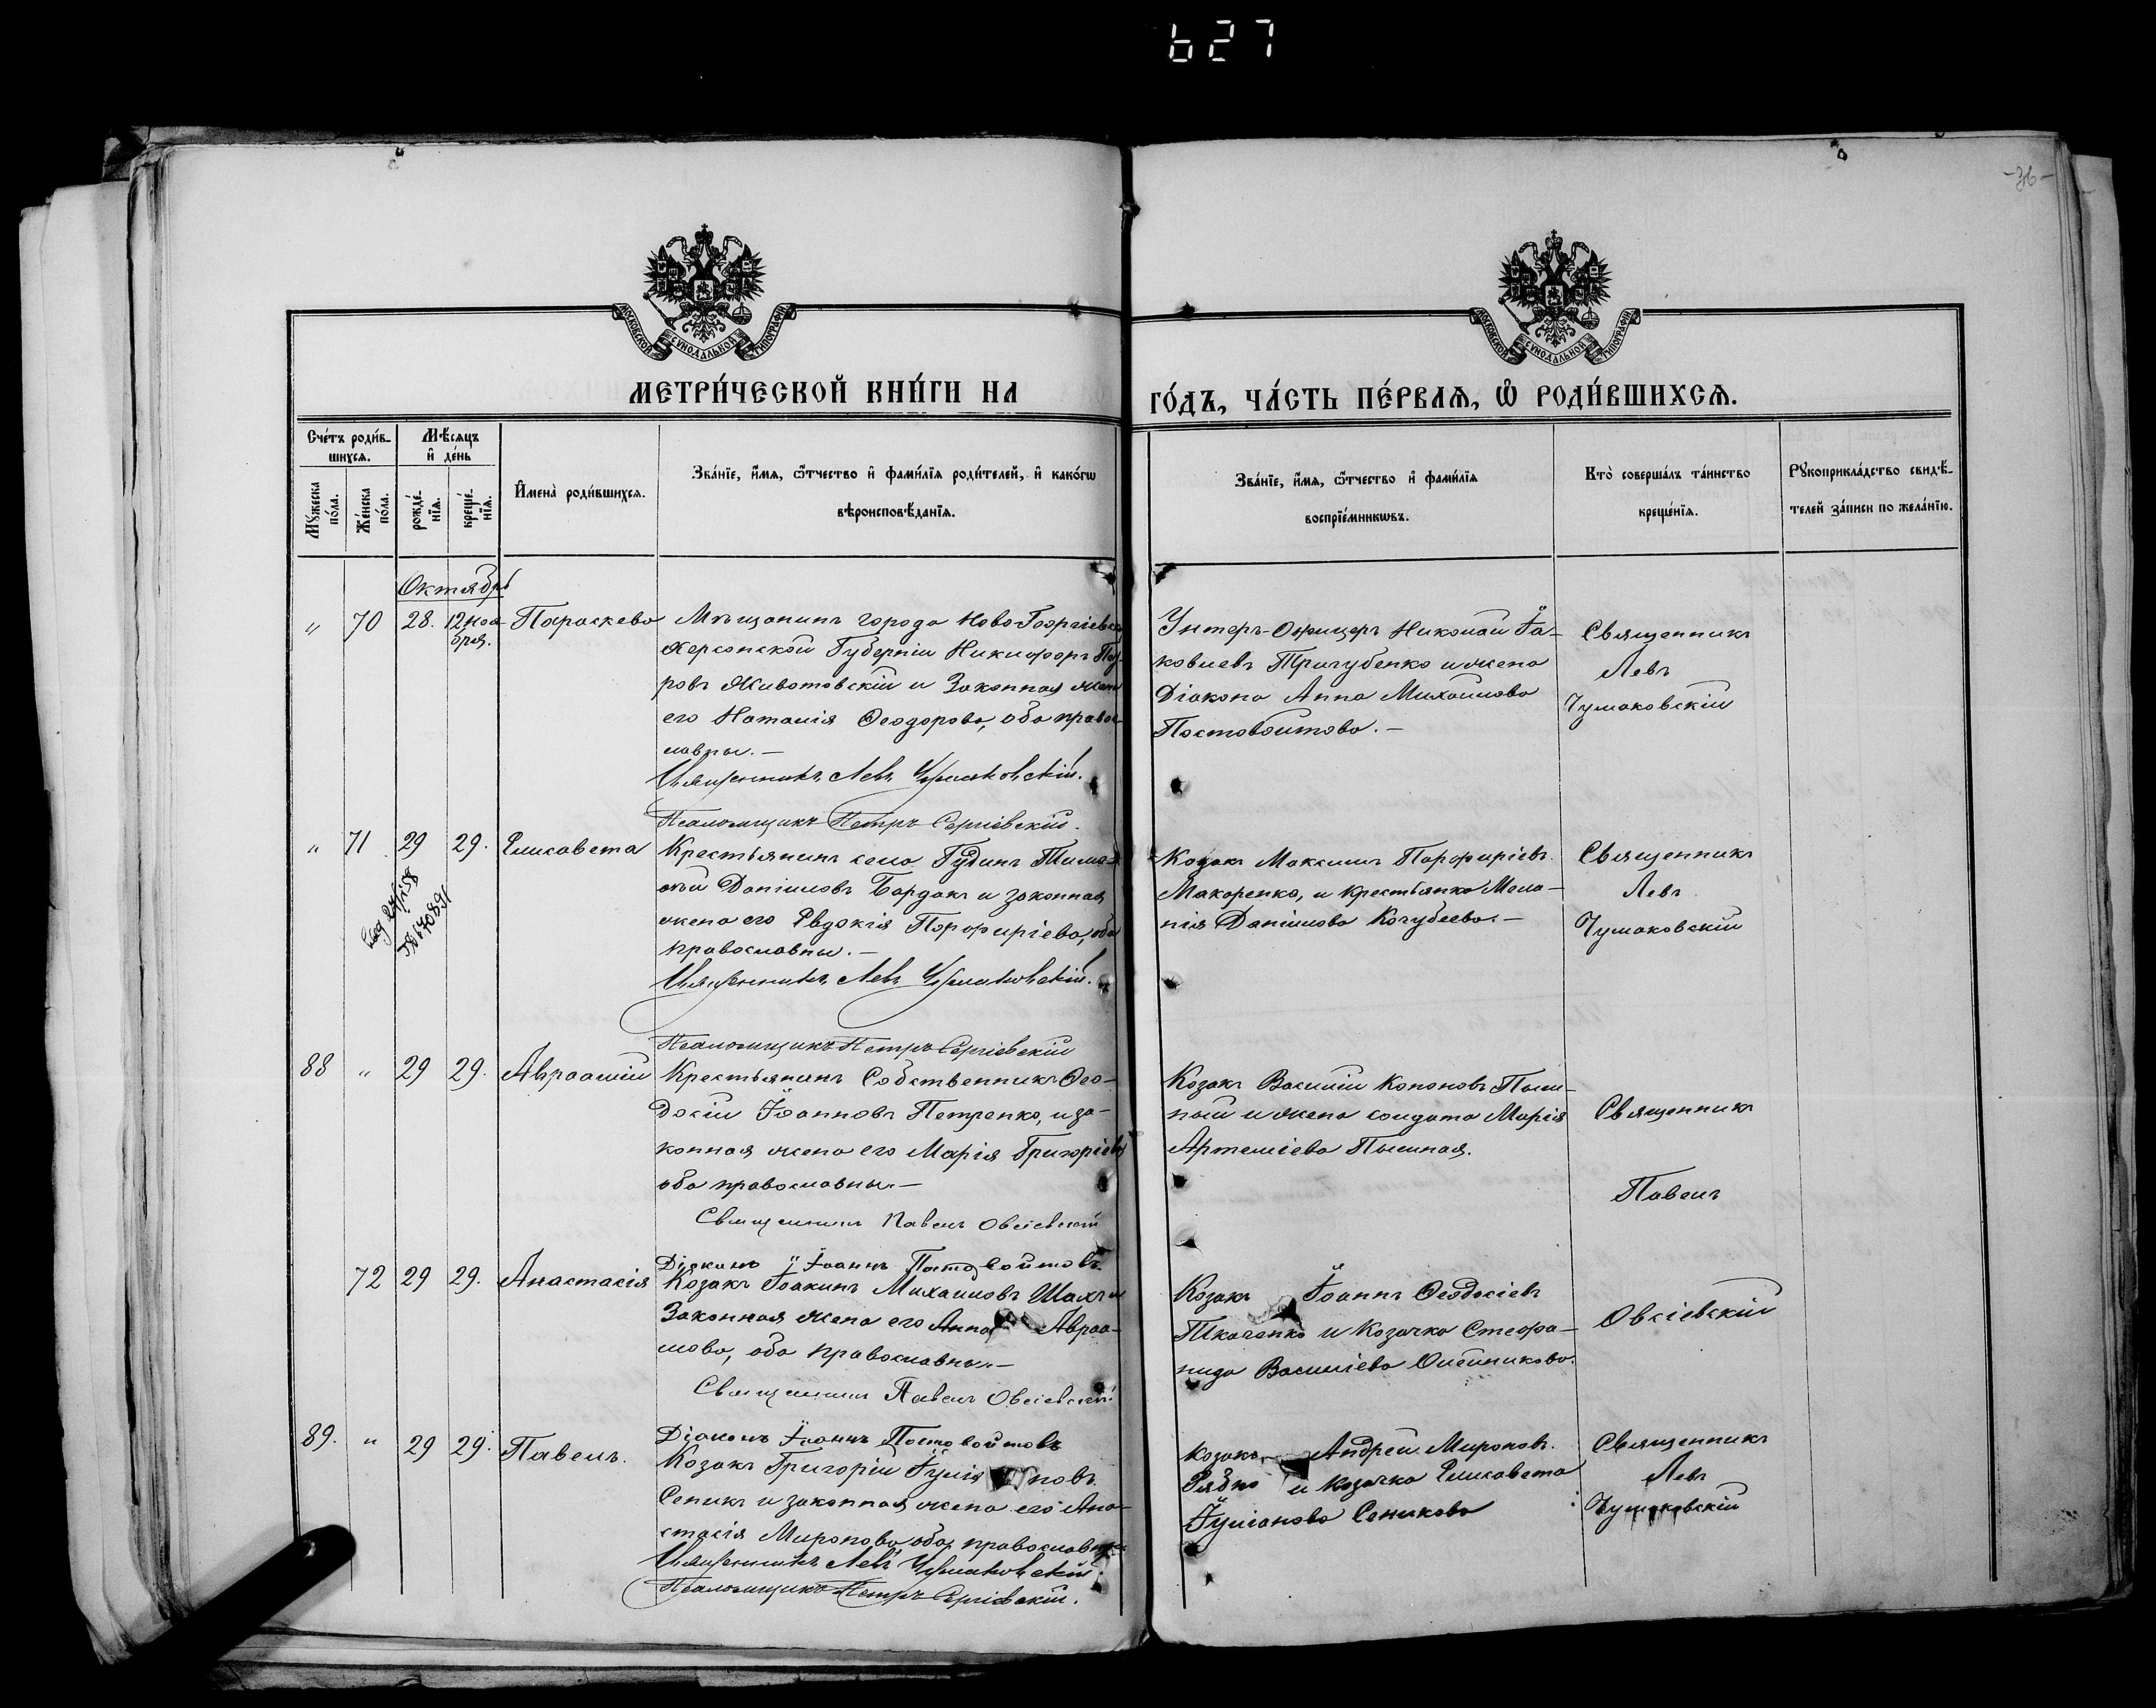 627
-36-
МОСКОВСКОЙ СѴНОДАЛЬНОЙ ТИПОГРАФІИ
МОСКОВСКОЙ СѴНОДАЛЬНОЙ ТИПОГРАФІИ
МЕТРИ́ЧЕСКОЙ КНИ́ГИ НА
ГО́ДЪ, ЧА́СТЬ ПЕ́РВАЯ, Ѡ҆ РОДИ́ВШИХСЯ.
Сче́тъ роди́в-
шихся.
Мѣ́сяцъ
и҆ де́нь
Мꙋ́жеска по́ла.
Же́нска по́ла.
рожде́нїя.
креще́нїя.
И҆мена̀ роди́вшихся.
Зва́нїе, и҆́мя, ѻ҆́тчество и҆ фами́лїя роди́телей, и҆ како́гѡ
вѣроисповѣ́данїя.
Зва́нїе, и҆́мя, ѻ҆́тчество и҆ фами́лїя
воспрїе́мникѡвъ.
Кто̀ соверша́лъ та́инство
креще́нїя.
Рꙋкоприкла́дство свидѣ́-
телей за́писи по жела́нїю.
Октябрь
„ 70 28. 12 ноя-
бря.
Параскева
Мѣщанинъ города Ново-Георгіевска
Херсонской Губерніи Никифоръ Пет-
ровъ Животовскій и Законная жена
его Наталія Ѳеодорова, оба право-
славны.—
Священникъ Левъ Чумаковскій.
Псаломщикъ Петръ Сергіевскій.
Унтеръ-Офицеръ Николай Іа-
ковлевъ Тригубенко и жена
Діакона Анна Михаилова
Постовойтова.—
Священникъ
Левъ
Чумаковскій
„ 71 29 29. Елисавета
Крестьянинъ села Гудинъ Тимо-
ѳей Даніиловъ Бардакъ и законная
жена его Евдокія Порфиріева, оба
православны.—
Священникъ Левъ Чумаковскій.
Псаломщикъ Петръ Сергіевскій
Козакъ Максимъ Порфиріевъ
Макаренко, и крестьянка Мела-
нія Даніилова Кочубеева.—
Священникъ
Левъ
Чумаковскій
88 „ 29 29. Авраамій
Крестьянинъ Собственникъ Ѳео-
досій Іоанновъ Петренко, и за-
конная жена его Марія Григоріева
оба православны.—
Священникъ Павелъ Овсіевскій
Діаконъ Іоаннъ Постовойтовъ.
Козакъ Василій Кононовъ Пыш-
ный и жена солдата Марія
Артеміева Пышная.
Священникъ
Павелъ
Овсіевскій
72 29 29. Анастасія
Козакъ Іоакимъ Михаиловъ Шахъ и
Законная жена его Анна Авраа-
мова, оба православны.—
Священникъ Павелъ Овсіевскій
Діаконъ Іоаннъ Постовойтовъ
Козакъ Іоаннъ Ѳеодосіевъ
Ткаченко и Козачка Стефа-
нида Василіева Олейникова.
89. „ 29 29. Павелъ.
Козакъ Григорій Іуліановъ
Сеникъ и законная жена его Ана-
стасія Миронова, оба православны
Священникъ Левъ Чумаковскій.
Псаломщикъ Петръ Сергіевскій.
Козакъ Андрей Мироновъ
Рябко и козачка Елисавета
Іуліанова Сеникова
Священникъ
Левъ
Чумаковскій